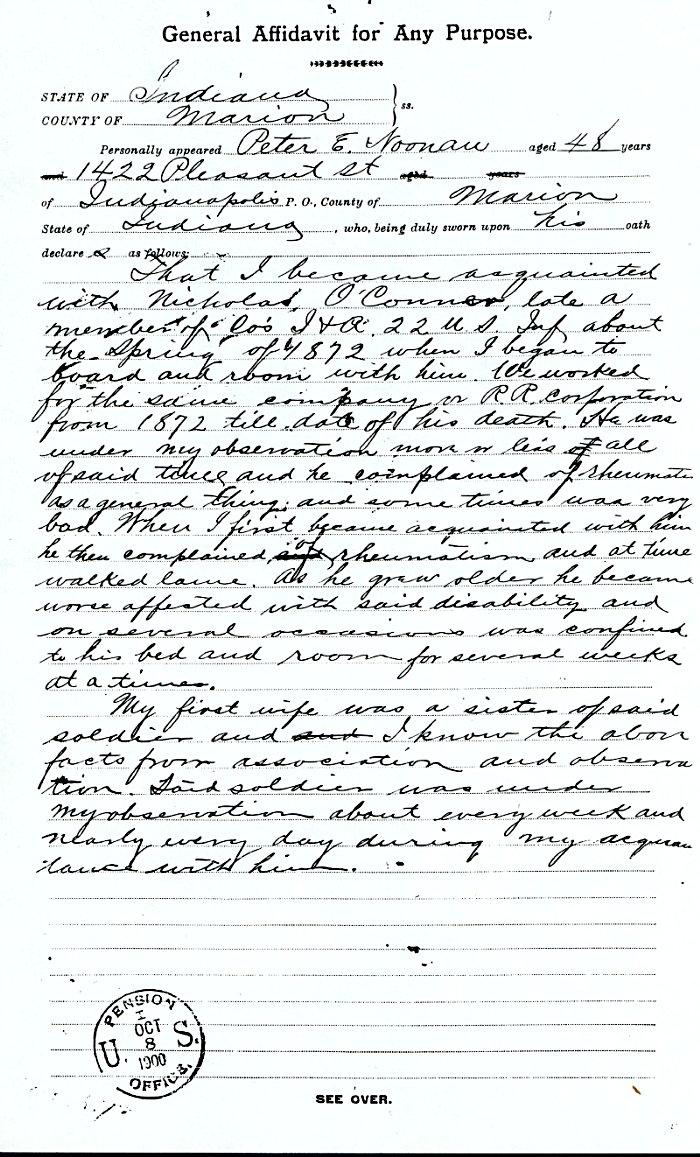 General Affidavit for Any Purpose.
STATE OF Indiana
COUNTY OF Marion } ss.
Personally appeared Peter E. Noonan aged 48 years
and 1422 Pleasant St aged years
of Indianapolis P. O., County of Marion
State of Indiana, who, being duly sworn upon his oath
declare s as follows:
That I became acquainted
with Nicholas O'Connor, late a
member of Co's I & A. 22 U.S. Inf about
the Spring of 1872 when I began to
board and room with him. We worked
for the same company or R.R. corporation
from 1872 till date of his death. He was
under my observation more or less of all
of said time and he complained of rheumati
as a general thing, and some times was very
bad. When I first became acquainted with him
he then complained of rheumatism and at time
walked lame. As he grew older he became
worse affected with said disability and
on several occasions was confined
to his bed and room for several weeks
at a times.
My first wife was a sister of said
soldier and and I know the abov
facts from association and observa
tion. Said soldier was under
my observation about every week and
nearly every day during my acquain
tance with him.
PENSION
OCT
U. 8 S.
1900
OFFICE.
SEE OVER.